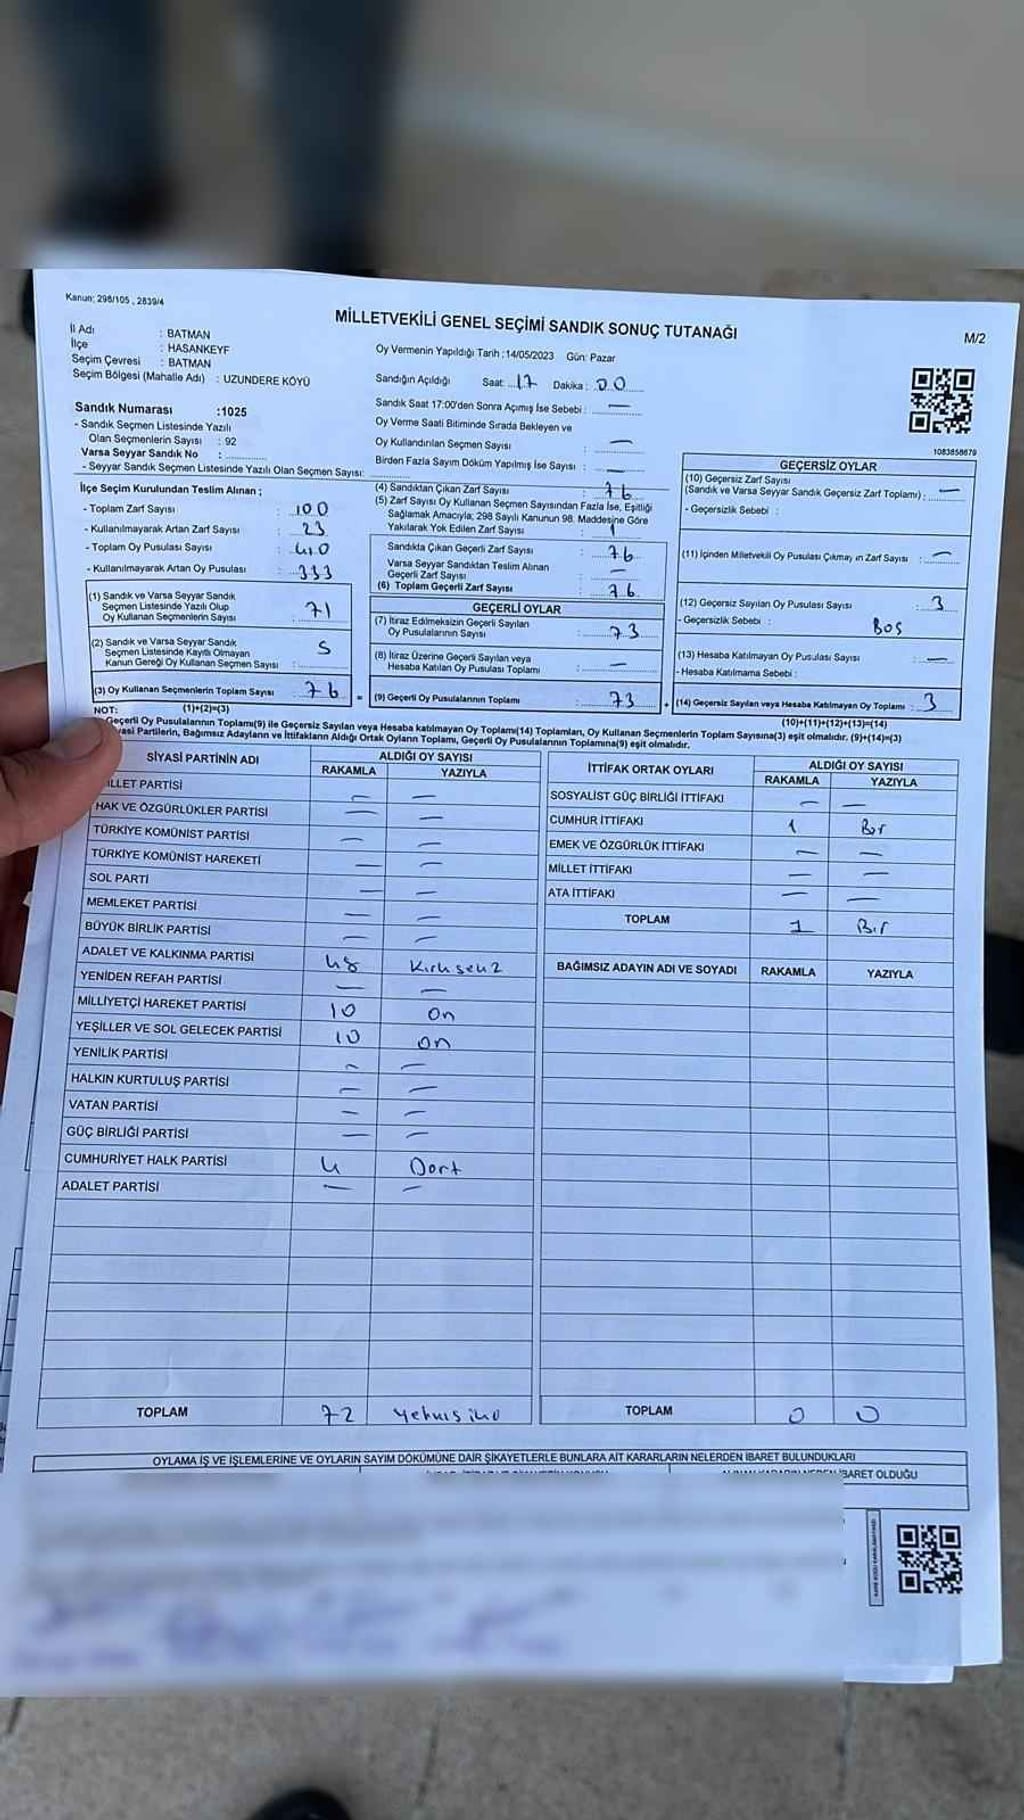 Kanun; 298/105 , 2839/4
MİLLETVEKİLİ GENEL SEÇİMİ SANDIK SONUÇ TUTANAĞI
M/2
İl Adı : BATMAN
İlçe : HASANKEYF
Seçim Çevresi : BATMAN
Seçim Bölgesi (Mahalle Adı) : UZUNDERE KÖYÜ
Sandık Numarası :1025
- Sandık Seçmen Listesinde Yazılı
Olan Seçmenlerin Sayısı : 92
Varsa Seyyar Sandık No :
- Seyyar Sandık Seçmen Listesinde Yazılı Olan Seçmen Sayısı:
Oy Vermenin Yapıldığı Tarih :14/05/2023 Gün: Pazar
Sandığın Açıldığı Saat: 17 Dakika : 00
Sandık Saat 17:00'den Sonra Açımış İse Sebebi : —
Oy Verme Saati Bitiminde Sırada Bekleyen ve
Oy Kullandırılan Seçmen Sayısı : —
Birden Fazla Sayım Döküm Yapılmış İse Sayısı : —
1083858679
İlçe Seçim Kurulundan Teslim Alınan ;
- Toplam Zarf Sayısı : 100
- Kullanılmayarak Artan Zarf Sayısı : 23
- Toplam Oy Pusulası Sayısı : 410
- Kullanılmayarak Artan Oy Pusulası : 333
(1) Sandık ve Varsa Seyyar Sandık
Seçmen Listesinde Yazılı Olup
Oy Kullanan Seçmenlerin Sayısı : 71
(2) Sandık ve Varsa Seyyar Sandık
Seçmen Listesinde Kayıtlı Olmayan
Kanun Gereği Oy Kullanan Seçmen Sayısı : 5
(3) Oy Kullanan Seçmenlerin Toplam Sayısı : 76
(4) Sandıktan Çıkan Zarf Sayısı : 76
(5) Zarf Sayısı Oy Kullanan Seçmen Sayısından Fazla İse, Eşitliği
Sağlamak Amacıyla; 298 Sayılı Kanunun 98. Maddesine Göre
Yakılarak Yok Edilen Zarf Sayısı :
Sandıkta Çıkan Geçerli Zarf Sayısı : 76
Varsa Seyyar Sandıktan Teslim Alınan
Geçerli Zarf Sayısı : —
(6) Toplam Geçerli Zarf Sayısı : 76
GEÇERLİ OYLAR
(7) İtiraz Edilmeksizin Geçerli Sayılan
Oy Pusulalarının Sayısı : 73
(8) İtiraz Üzerine Geçerli Sayılan veya
Hesaba Katılan Oy Pusulası Toplamı : —
= (9) Geçerli Oy Pusulalarının Toplamı : 73
GEÇERSİZ OYLAR
(10) Geçersiz Zarf Sayısı
(Sandık ve Varsa Seyyar Sandık Geçersiz Zarf Toplamı) : —
- Geçersizlik Sebebi :
(11) İçinden Milletvekili Oy Pusulası Çıkmayın Zarf Sayısı : —
(12) Geçersiz Sayılan Oy Pusulası Sayısı : 3
- Geçersizlik Sebebi : Boş
(13) Hesaba Katılmayan Oy Pusulası Sayısı : —
- Hesaba Katılmama Sebebi :
+ (14) Geçersiz Sayılan veya Hesaba Katılmayan Oy Toplamı : 3
NOT: (1)+(2)=(3)
(10)+(11)+(12)+(13)=(14)
Geçerli Oy Pusulalarının Toplamı(9) ile Geçersiz Sayılan veya Hesaba katılmayan Oy Toplamı(14) Toplamları, Oy Kullanan Seçmenlerin Toplam Sayısına(3) eşit olmalıdır. (9)+(14)=(3)
Partilerin, Bağımsız Adayların ve İttifakların Aldığı Ortak Oyların Toplamı, Geçerli Oy Pusulalarının Toplamına(9) eşit olmalıdır.
SİYASİ PARTİNİN ADI ALDIĞI OY SAYISI
RAKAMLA YAZIYLA
LLET PARTİSİ — —
HAK VE ÖZGÜRLÜKLER PARTİSİ — —
TÜRKİYE KOMÜNİST PARTİSİ — —
TÜRKİYE KOMÜNİST HAREKETİ — —
SOL PARTİ — —
MEMLEKET PARTİSİ — —
BÜYÜK BİRLİK PARTİSİ — —
ADALET VE KALKINMA PARTİSİ 48 Kırksekiz
YENİDEN REFAH PARTİSİ — —
MİLLİYETÇİ HAREKET PARTİSİ 10 On
YEŞİLLER VE SOL GELECEK PARTİSİ 10 on
YENİLİK PARTİSİ — —
HALKIN KURTULUŞ PARTİSİ — —
VATAN PARTİSİ — —
GÜÇ BİRLİĞİ PARTİSİ — —
CUMHURİYET HALK PARTİSİ 4 Dört
ADALET PARTİSİ — —
TOPLAM 72 yetmişiki
İTTİFAK ORTAK OYLARI ALDIĞI OY SAYISI
RAKAMLA YAZIYLA
SOSYALİST GÜÇ BİRLİĞİ İTTİFAKI — —
CUMHUR İTTİFAKI 1 Bir
EMEK VE ÖZGÜRLÜK İTTİFAKI — —
MİLLET İTTİFAKI — —
ATA İTTİFAKI — —
TOPLAM 1 Bir
BAĞIMSIZ ADAYIN ADI VE SOYADI RAKAMLA YAZIYLA
TOPLAM 0 0
OYLAMA İŞ VE İŞLEMLERİNE VE OYLARIN SAYIM DÖKÜMÜNE DAİR ŞİKAYETLERLE BUNLARA AİT KARARLARIN NELERDEN İBARET BULUNDUKLARI
İBARET OLDUĞU